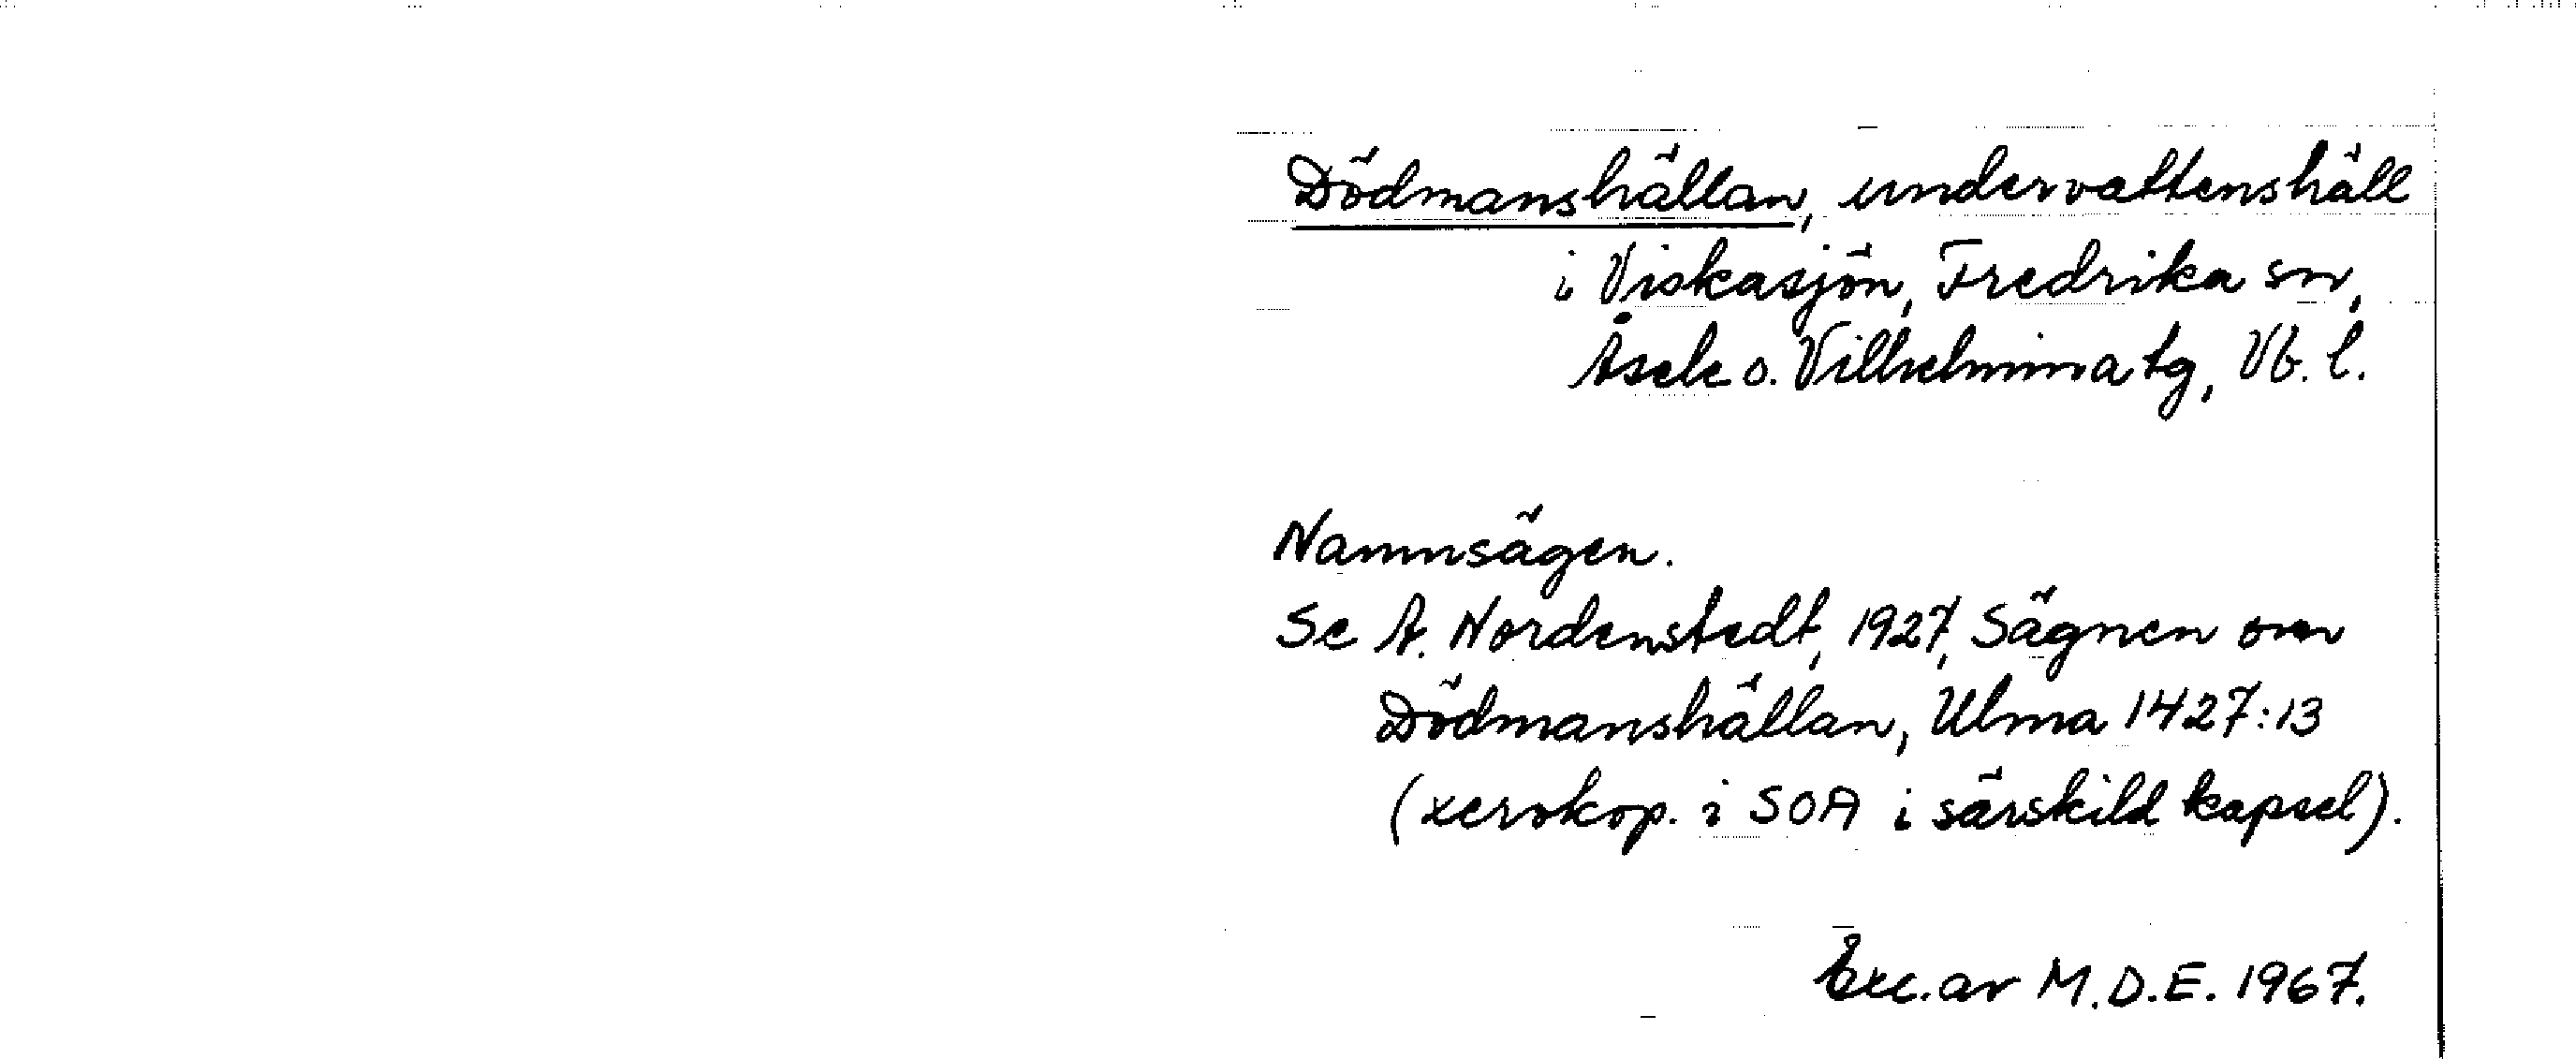 Dödmanshällan, undervattenshäll
i Viskasjön, Fredrika sn,
Åsele o. Vilhelmina tg, Vb. l.
Namnsägen.
Se A. Nordenstedt, 1927, Sägnen om
Dödmanshällan, Ulma 1427:13
(xerokop. i SOA i särskild kapsel).
Exc. av M.D.E. 1967.